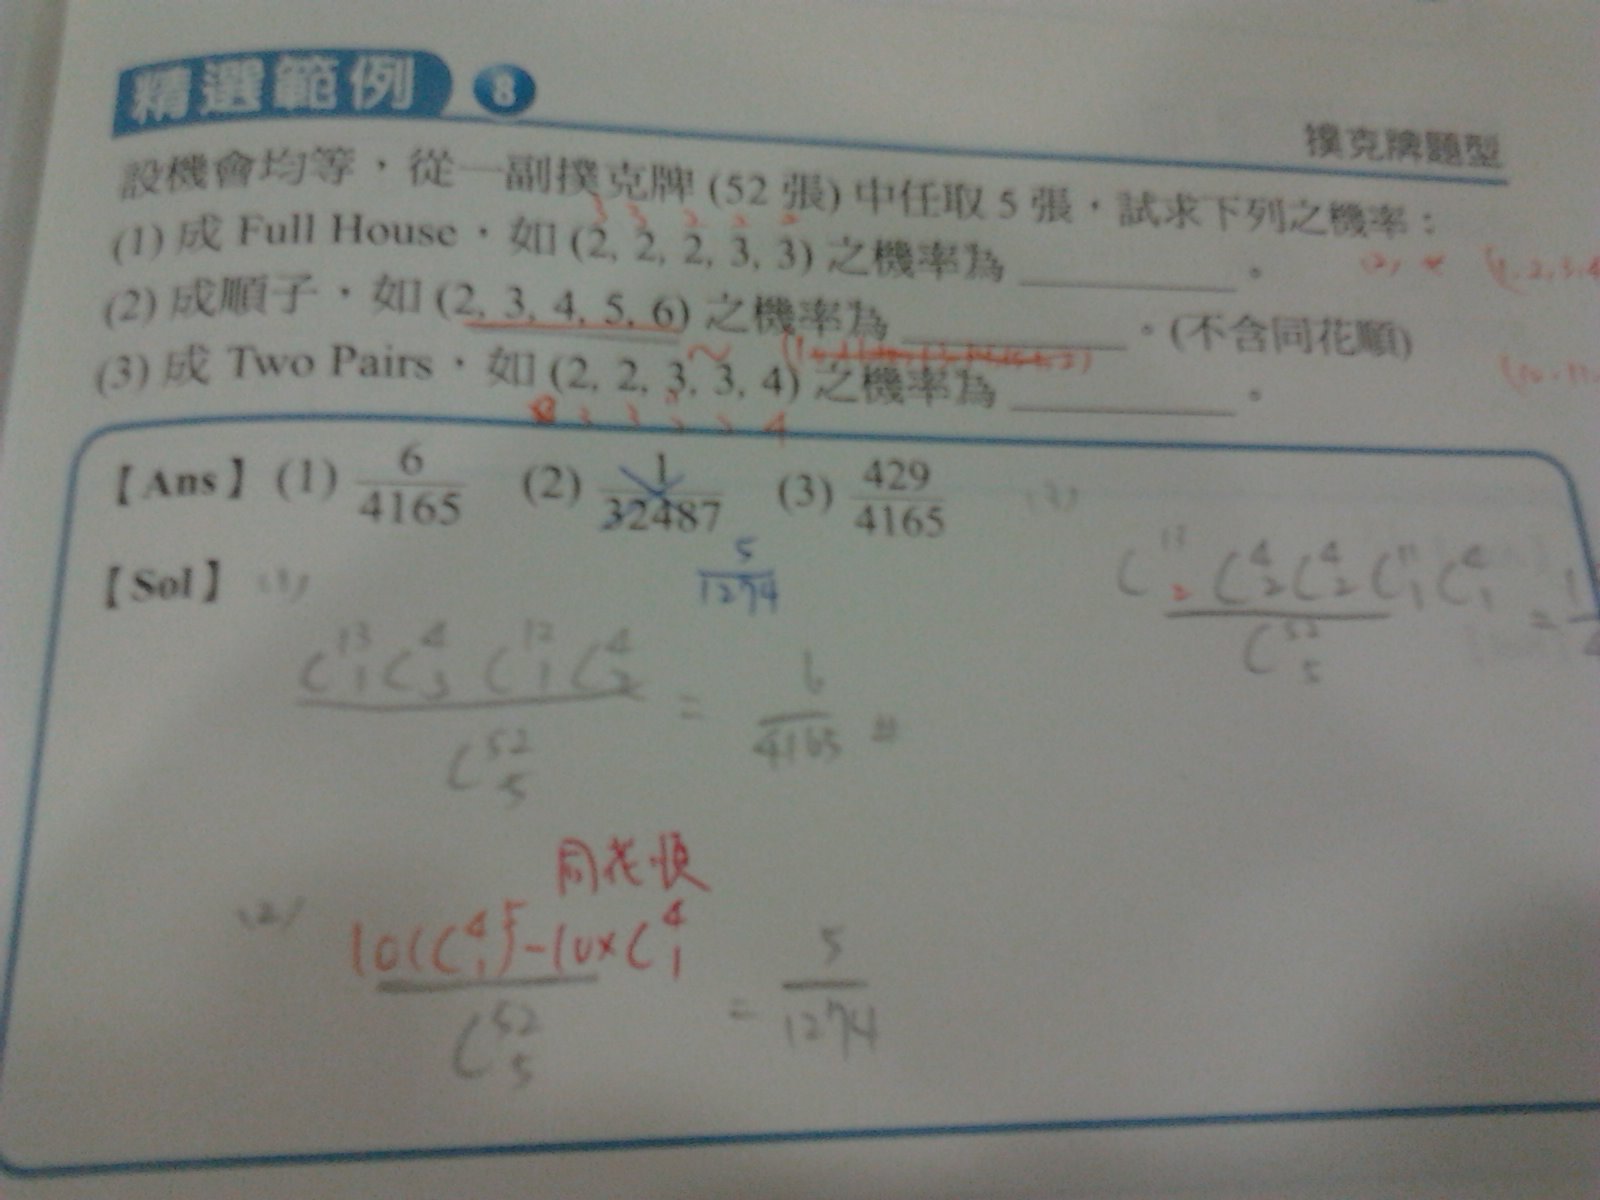 精選範例 8
撲克牌題型
設機會均等，從一副撲克牌 (52 張) 中任取 5 張，試求下列之機率：
(1) 成 Full House，如 (2, 2, 2, 3, 3) 之機率為 ________。
(2) 成順子，如 (2, 3, 4, 5, 6) 之機率為 ________。(不含同花順)
(3) 成 Two Pairs，如 (2, 2, 3, 3, 4) 之機率為 ________。
3 3 2 2 4
【Ans】(1) 6/4165 (2) 1/32487 (3) 429/4165
5/1274
【Sol】(1)
C^13_1 C^4_3 C^12_1 C^4_2 / C^52_5 = 6/4165 #
(3)
C^13_2 C^4_2 C^4_2 C^11_1 C^4_1 / C^52_5 =
同花順
(2) 10(C^4_1)^5 - 10×C^4_1 / C^52_5 = 5/1274